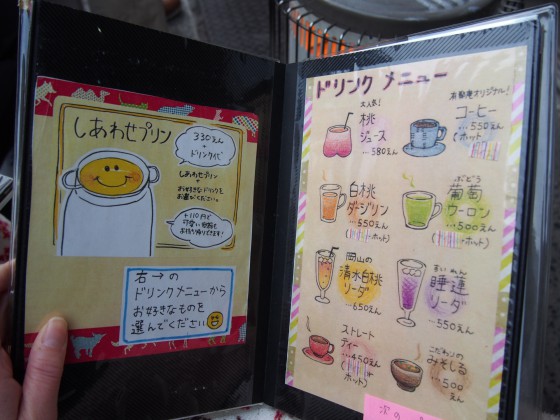 しあわせプリン
330えん
+
ドリンク代
しあわせプリン
+
お好きなドリンクを
お選びください。
+110円で
可愛い
お持ち帰りできます!
右→の
ドリンクメニューから
お好きなものを
選んでください
ドリンク メニュー
大人気!
桃
ジュース
…580えん
有鄰庵オリジナル!
コーヒー
…550えん
ホット
白桃
ダージリン
…550えん
ホット
ぶどう
葡萄
ウーロン
…500えん
ホット
岡山の
清水白桃
ソーダ
…650えん
すいれん
睡蓮
ソーダ
…550えん
ストレート
ティー
…450えん
ホット
こだわりの
みそしる
…500
えん
次の